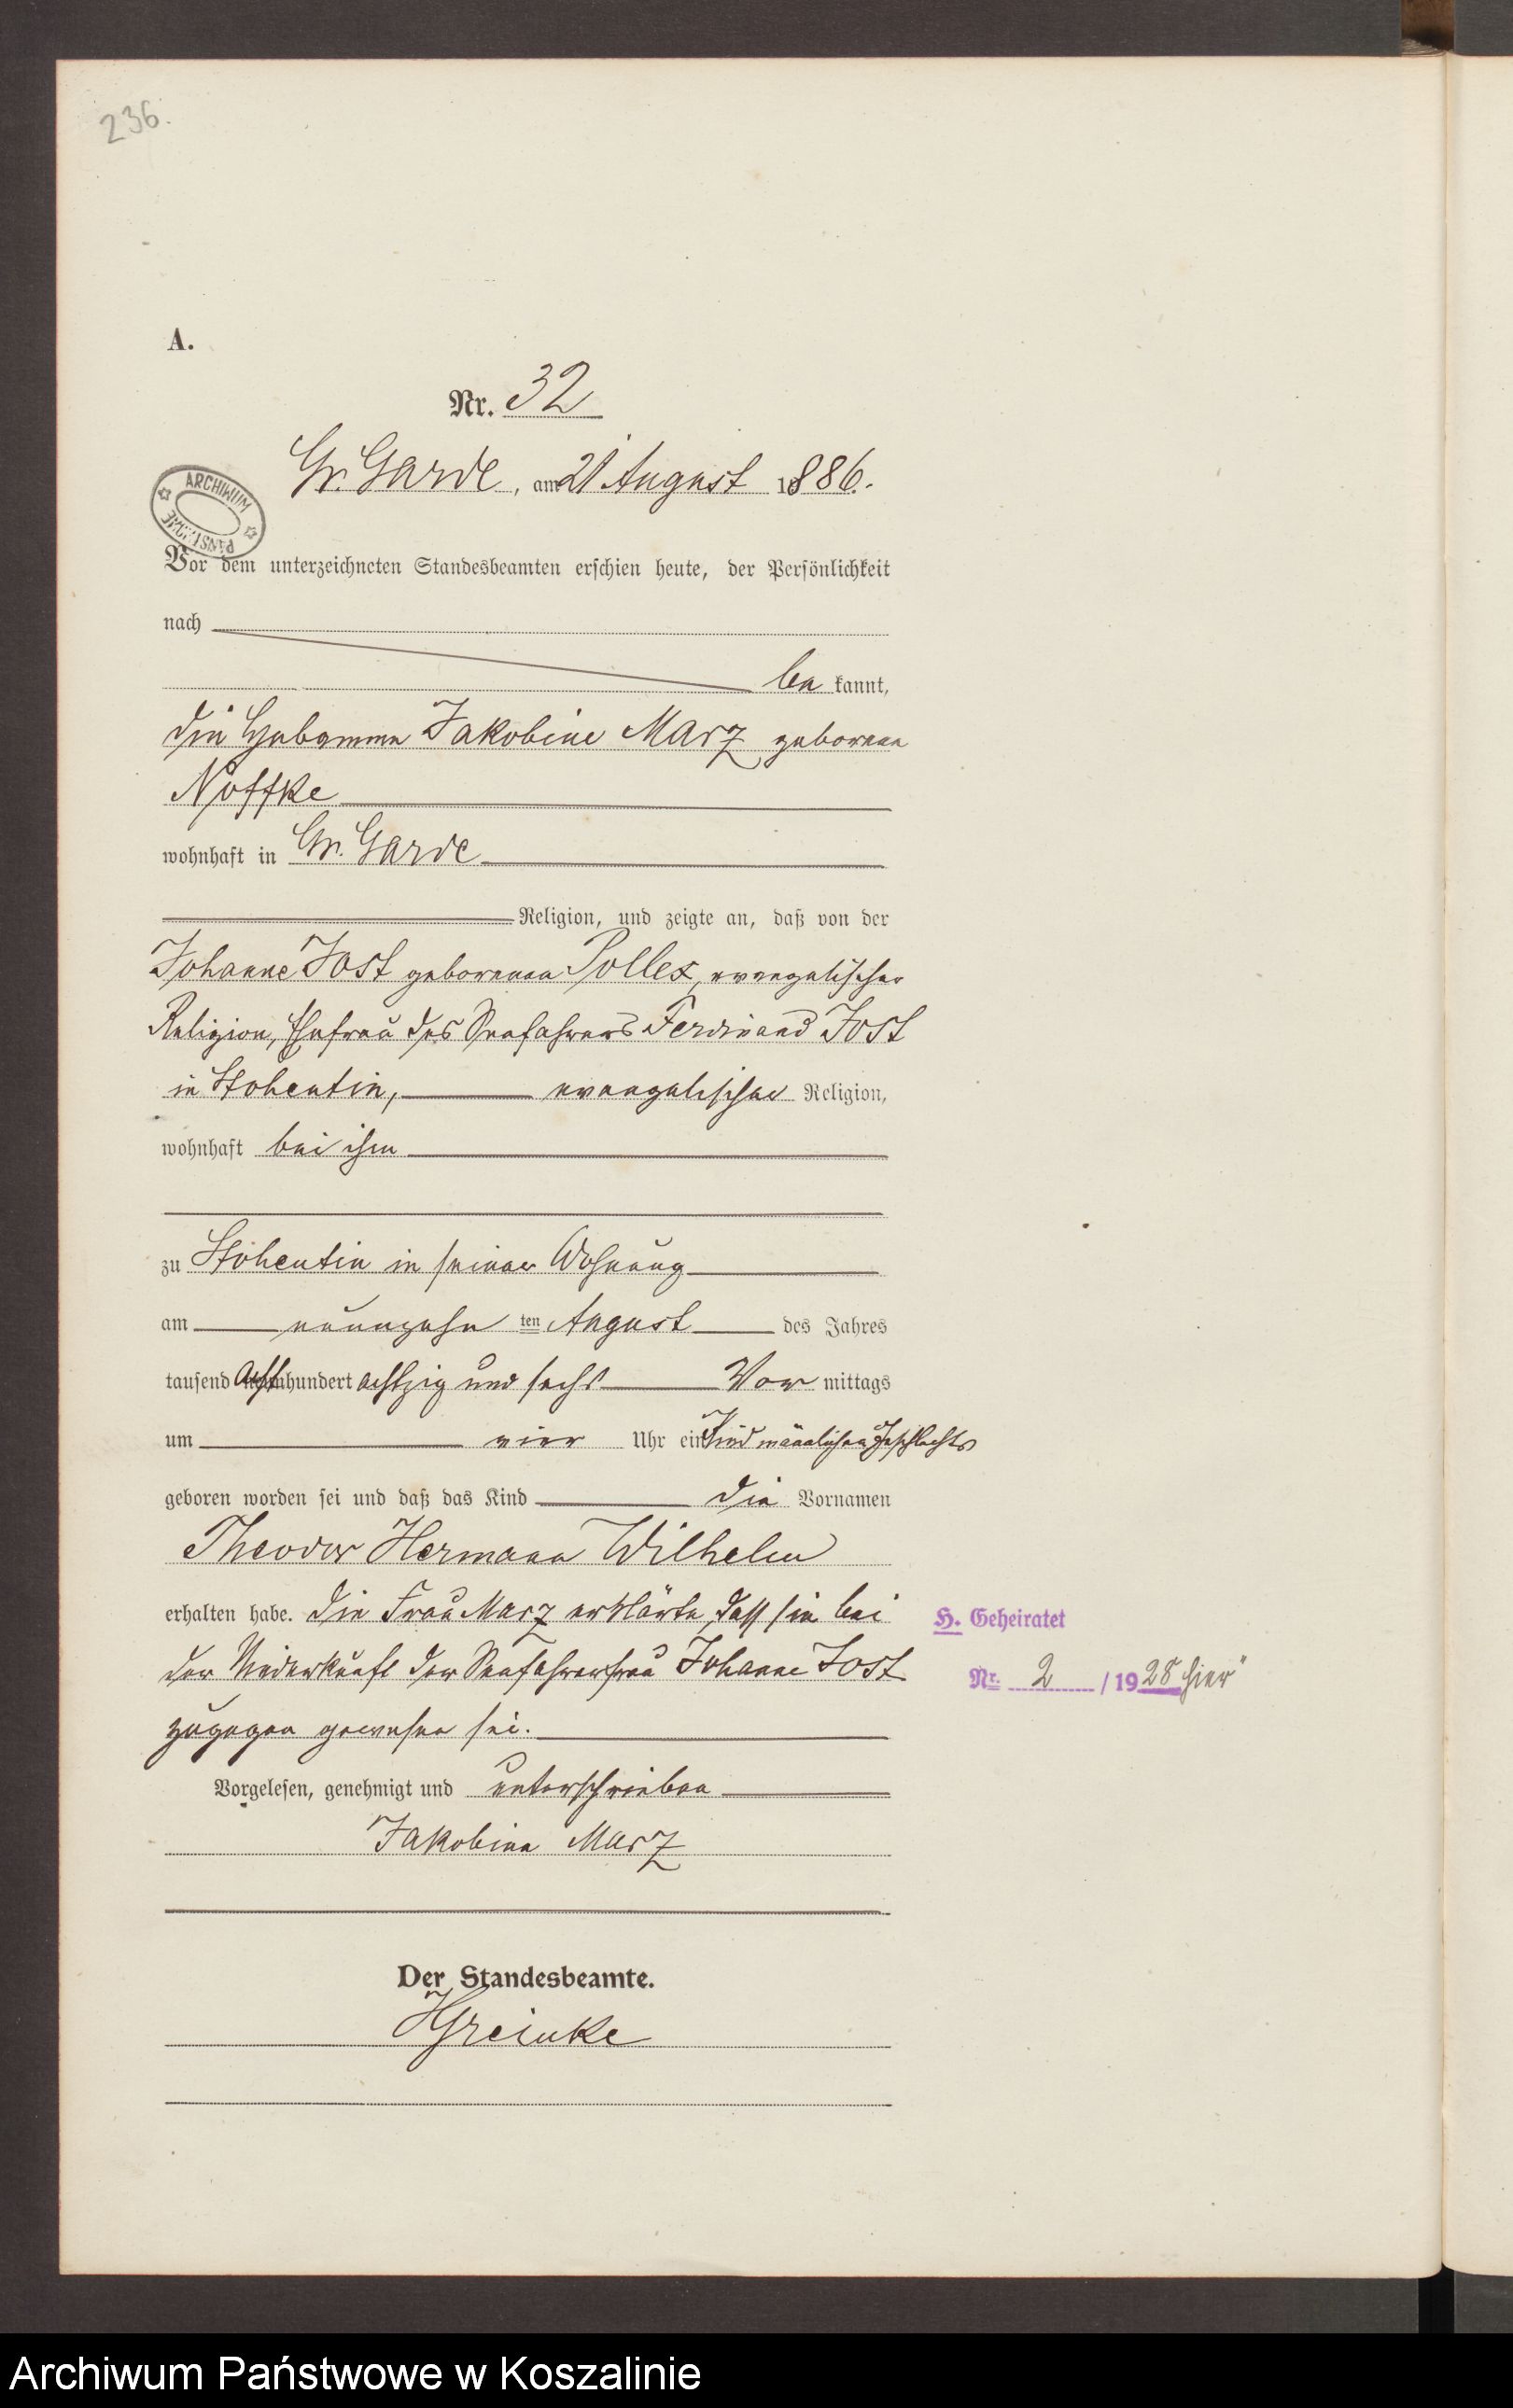 236.
A.
Nr. 32
Gr. Garde, am 21 August 1886.
ARCHIWUM PAŃSTWOWE
Vor dem unterzeichneten Standesbeamten erschien heute, der Persönlichkeit
nach
be kannt,
die Hebamme Jakobine Marz geborene
Noffke
wohnhaft in Gr. Garde
Religion, und zeigte an, daß von der
Johanne Jost geborenen Pollex, evangelischer
Religion, Ehefrau des Seefahrers Ferdinand Jost
in Stohentin, evangelischer Religion,
wohnhaft bei ihm
zu Stohentin in seiner Wohnung
am neunzehn ten August des Jahres
tausend acht hundert achtzig und sechs Vor mittags
um vier Uhr ein Kind männlichen Geschlechts
geboren worden sei und daß das Kind die Vornamen
Theodor Hermann Wilhelm
erhalten habe. Die Frau Marz erklärte, dass sie bei
der Niederkunft der Seefahrerfrau Johanne Jost
zugegen gewesen sei.
H. Geheiratet
Nr. 2 / 1928 hier
Vorgelesen, genehmigt und unterschrieben
Jakobine Marz
Der Standesbeamte.
HGreinke
Archiwum Państwowe w Koszalinie